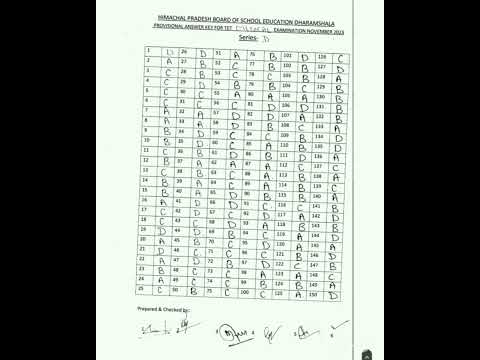 HIMACHAL PRADESH BOARD OF SCHOOL EDUCATION DHARAMSHALA
PROVISIONAL ANSWER KEY FOR TET EXAMINATION NOVEMBER 2023
Series- D
1 D 26 D 51 A 76 B 101 D 126 C
2 A 27 B 52 C 77 B 102 B 127 D
3 C 28 B 53 C 78 C 103 B 128 A
4 C 29 D 54 B 79 B 104 C 129 B
5 C 30 C 55 A 80 A 105 A 130 B
6 C 31 C 56 C 81 D 106 D 131 B
7 A 32 A 57 D 82 D 107 A 132 B
8 A 33 A 58 D 83 B 108 C 133 A
9 B 34 D 59 C 84 C 109 B 134 D
10 D 35 C 60 C 85 A 110 B 135 D
11 C 36 B 61 D 86 B 111 D 136 A
12 B 37 A 62 A 87 A 112 D 137 C
13 C 38 B 63 C 88 B 113 A 138 A
14 B 39 A 64 C 89 A 114 B 139 C
15 B 40 A 65 D 90 B 115 B 140 C
16 A 41 B 66 D 91 C 116 C 141 B
17 C 42 D 67 C 92 D 117 D 142 B
18 C 43 C 68 D 93 C 118 A 143 D
19 D 44 D 69 B 94 C 119 A 144 D
20 A 45 B 70 C 95 C 120 D 145 A
21 A 46 D 71 C 96 D 121 A 146 A
22 A 47 D 72 B 97 B 122 C 147 B
23 B 48 C 73 C 98 A 123 A 148 C
24 C 49 C 74 C 99 A 124 B 149 B
25 C 50 B 75 C 100 C 125 A 150 D
Prepared & Checked by: